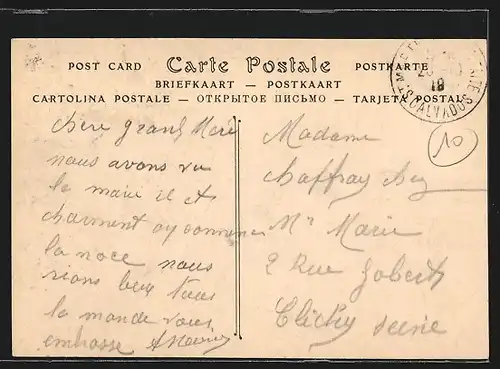 POST CARD Carte Postale POSTKARTE
BRIEFKAART — POSTKAART
CARTOLINA POSTALE — ОТКРЫТОЕ ПИСЬМО — TARJETA POSTAL
CALVADOS
18
10
chère grand Mère
nous avons vu
la marié il et
charment
la noce nous
rions bien tous
la monde vous
embrasse
Madame
chaffray chez
Mr Marie
2 Rue Gobert
Clichy seine